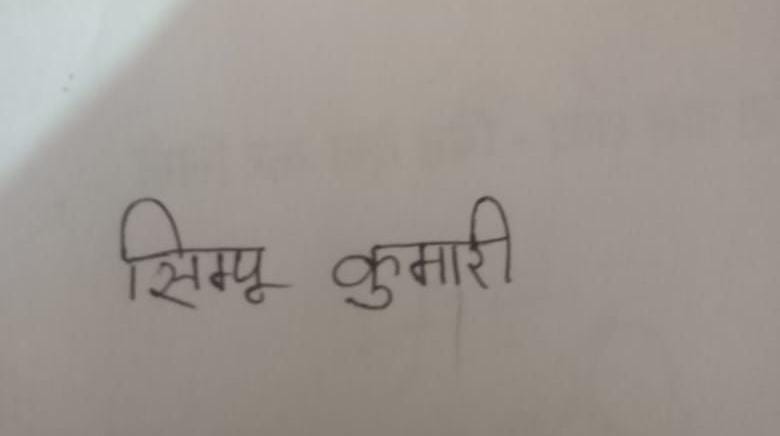 सिम्पू कुमारी